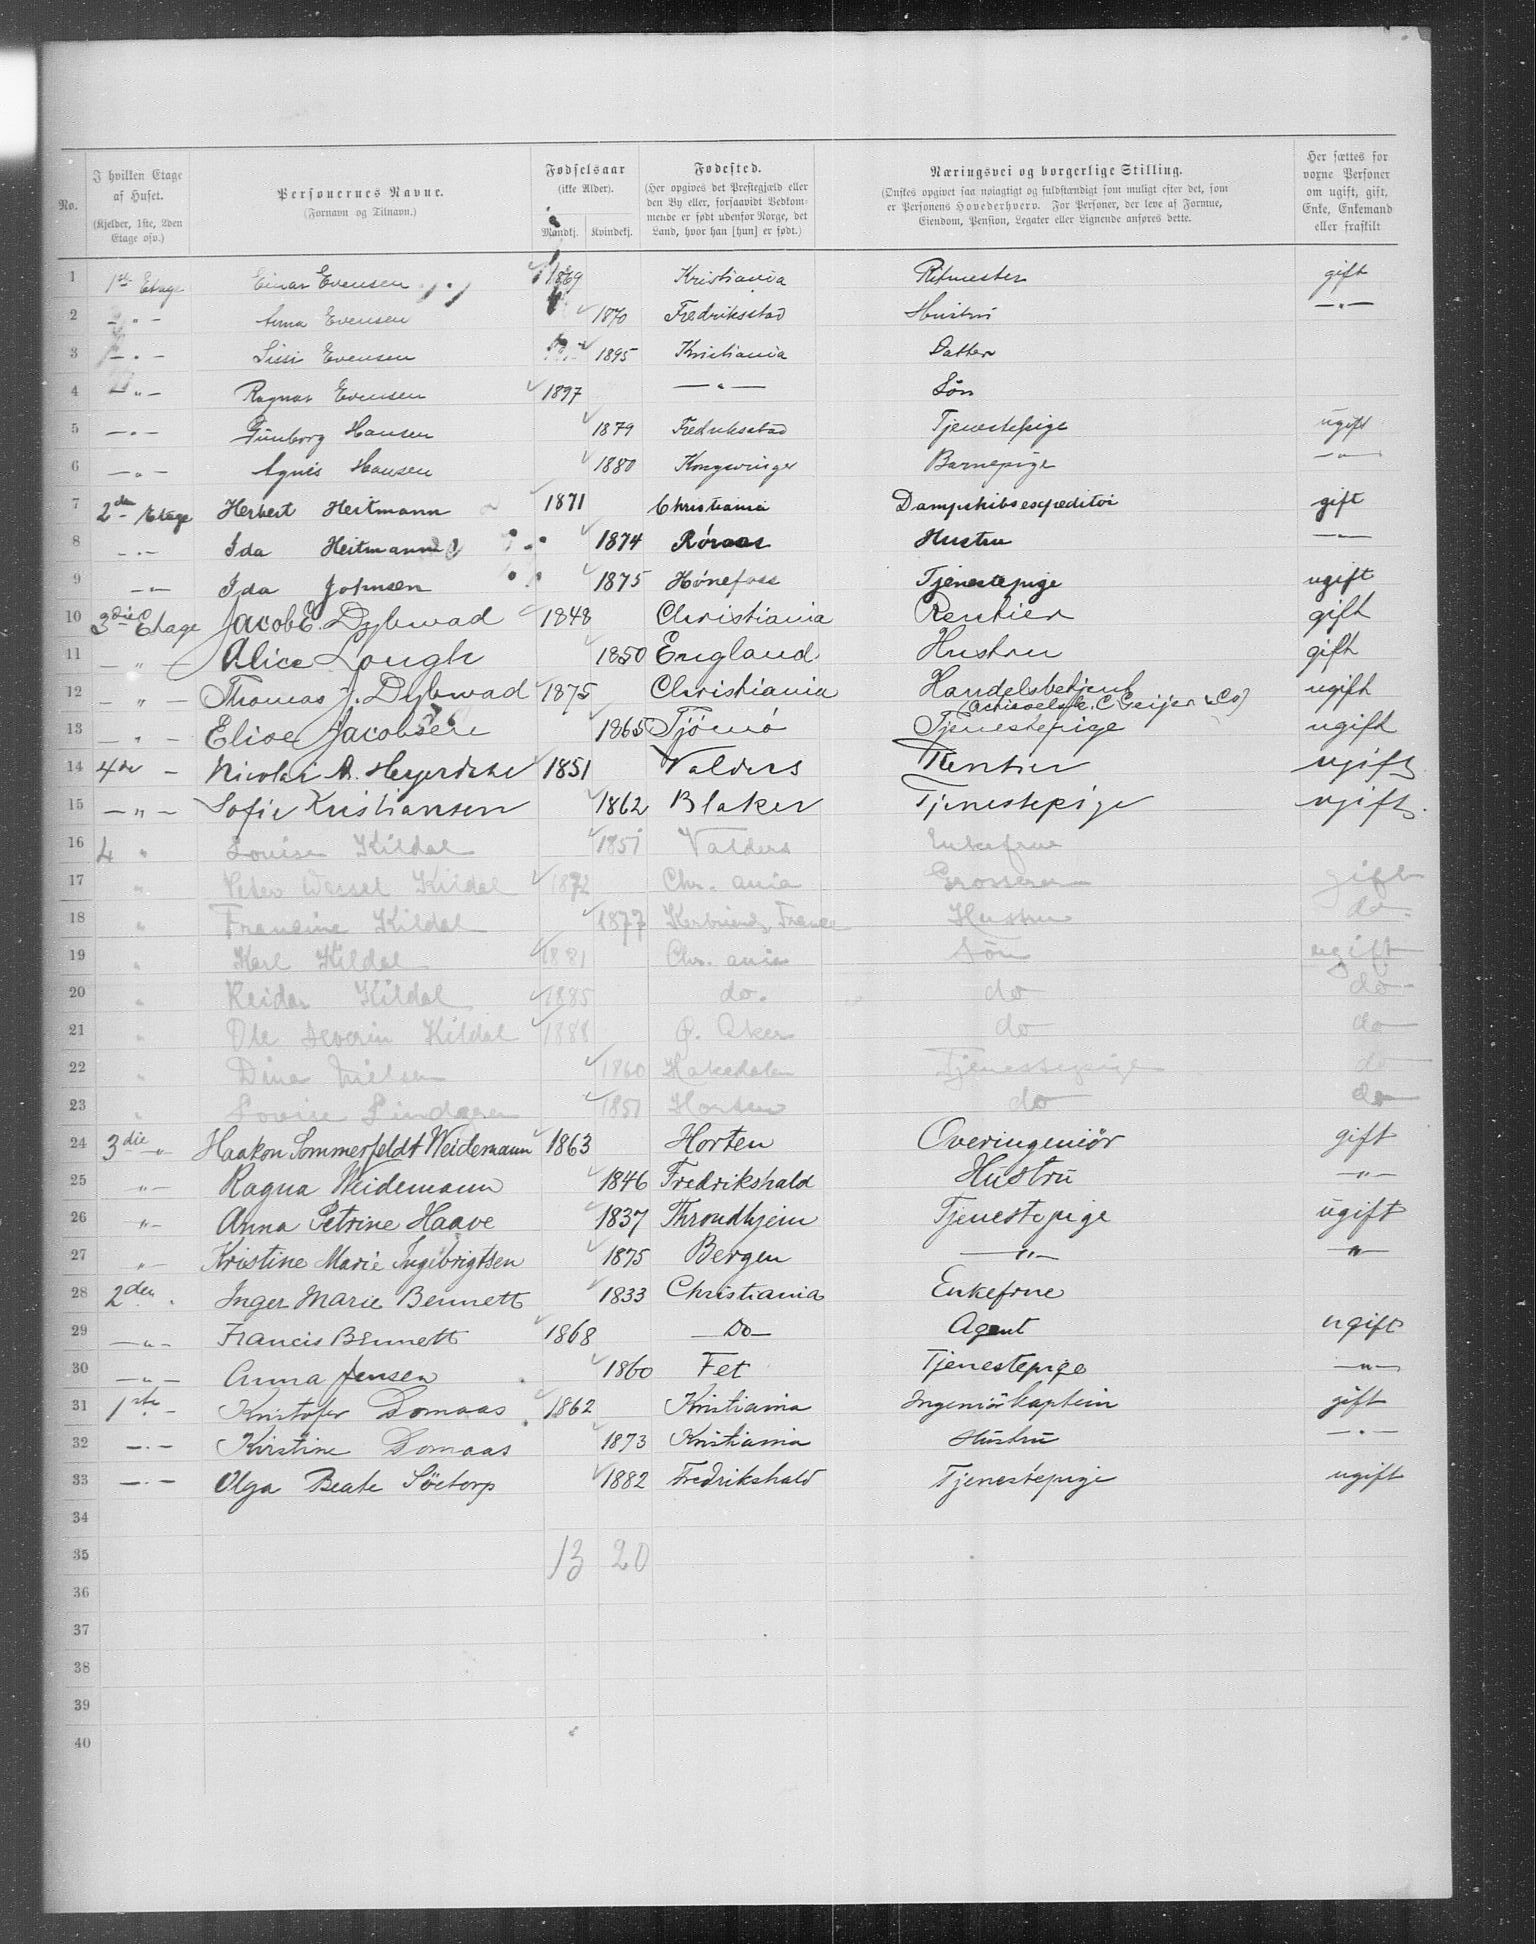 No.
I hvilken Etage
af Huset.
(Kjelder, 1ste, 2den
Etage osv.)
Personernes Navne.
(Fornavn og Tilnavn.)
Fødselsaar
(ikke Alder).
Mandkj. Kvindekj.
Fødested.
(Her opgives det Prestegjæld eller
den By eller, forsaavidt Vedkom-
mende er født udenfor Norge, det
Land, hvor han [hun] er født.)
Næringsvei og borgerlige Stilling.
(Ønskes opgivet saa nøiagtigt og fuldstændigt som muligt efter det, som
er Personens Hovederhverv. For Personer, der leve af Formue,
Eiendom, Pension, Legater eller Lignende anføres dette.
Her sættes for
voxne Personer
om ugift, gift,
Enke, Enkemand
eller fraskilt
1 1ste Etage Einar Evensen 1869 Kristiania Ritmester gift
2 — " — Anna Evensen 1870 Fredriksstad Hustru — " —
3 — " — Sissi Evensen 1895 Kristiania Datter
4 — " — Ragnar Evensen 1897 — " — Søn
5 — " — Gunborg Hansen 1879 Fredriksstad Tjenestepige ugift
6 — " — Agnes Hansen 1880 Kongsvinger Barnepige — " —
7 2den Etage Herbert Heitmann 1871 Christiania Dampskibsexpeditør gift
8 — " — Ida Heitmann 1874 Røraas Hustru — " —
9 — " — Ida Johnsen 1875 Hønefoss Tjenestepige ugift
10 3die Etage Jacob E. Dybwad 1848 Christiania Rentier gift
11 — " — Alice Lough 1850 England Hustru gift
12 — " — Thomas J. Dybwad 1875 Christiania Handelsbetjent ugift
(Actieselsk. C Geijer & Co)
13 — " — Elise Jacobsen 1865 Tjømø Tjenestepige ugift
14 4de — Nicolai A. Heyerdahl 1851 Valders Rentier ugift
15 — " — Sofie Kristiansen 1862 Blaker Tjenestepige ugift
16 4 " Louise Kildal 1851 Valders Enkefrue
17 " Peter Wessel Kildal 1872 Chr. ania Grosserer gift
18 " Francine Kildal 1877 France Hustru do
19 " Karl Kildal 1881 Chr. ania Søn ugift
20 " Reidar Kildal 1885 do. do do
21 " Ole Severin Kildal 1888 Ø. Aker do do
22 " Dina Nielsen 1860 Hakedalen Tjenestepige do
23 " Lovise Lindgren 1851 Horten do do
24 3die " Haakon Sommerfeldt Weidemann 1863 Horten Overingeniør gift
25 — " — Ragna Weidemann 1846 Fredrikshald Hustru — " —
26 — " — Anna Petrine Haave 1837 Throndhjem Tjenestepige ugift
27 — " — Kristine Marie Ingebrigtsen 1875 Bergen — " — — " —
28 2den " Inger Marie Bennett 1833 Christiania Enkefrue
29 — " — Francis Bennett 1868 — Do — Agent ugift
30 — " — Anna Jensen 1860 Fet Tjenestepige — " —
31 1ste — Kristofer Domaas 1862 Kristiania Ingeniørkaptein gift
32 — " — Kirstine Domaas 1873 Kristiania Hustru — " —
33 — " — Olga Beate Söetorp 1882 Fredrikshald Tjenestepige ugift
34
35 13 20
36
37
38
39
40